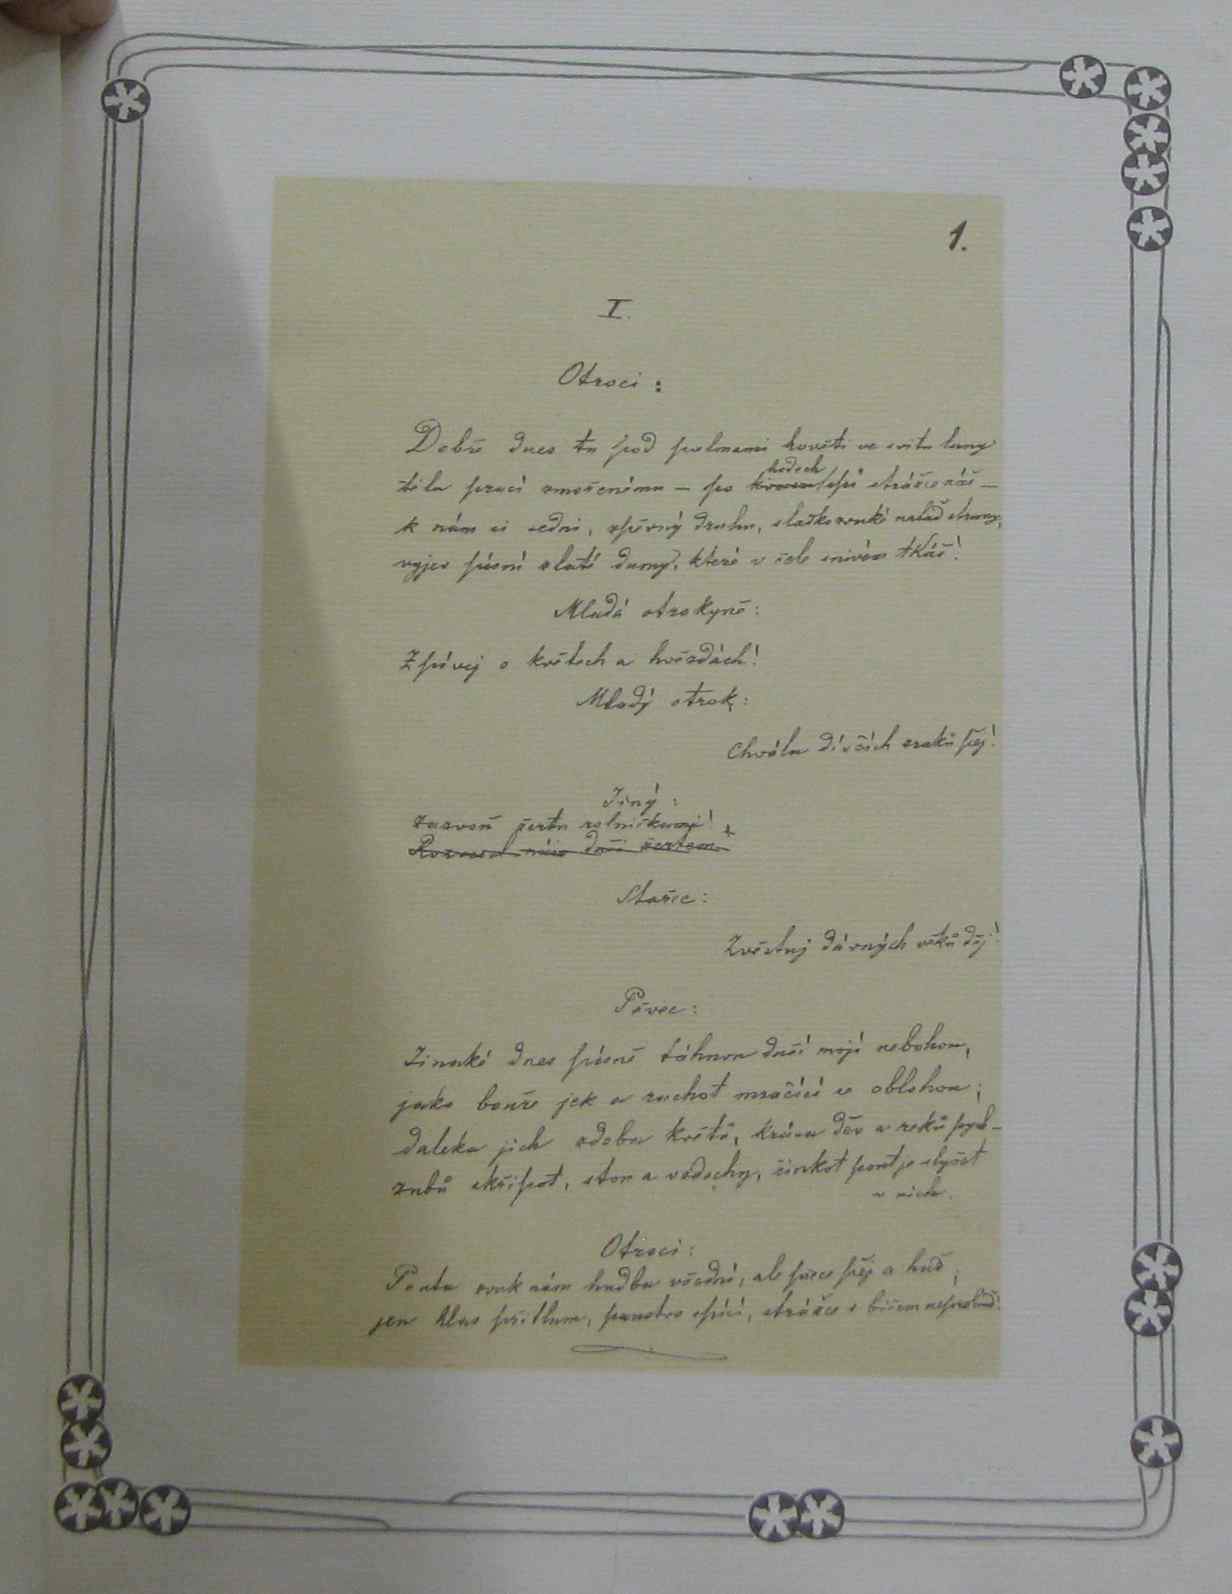 1.
I.
Otroci:
Dobře dnes tu pod palmami hověti ve svitu luny
tělu prací zmořenému — po hodech spí strážce náš —
k nám si sedni, zpěvný druhu, sladkozvuké nalaď struny,
vyjev písní zlaté dumy, které v čele snivém tkáš!
Mladá otrokyně:
Zpívej o květech a hvězdách!
Mladý otrok:
Chválu dívčích zraků pěj!
Jiný:
Zazvoň žertu rolničkami!
Rozvesel náši duši žertem
Stařec:
Zvěstuj dávných věků děj!
Pěvec:
Jinaké dnes písně táhnou duší mojí nebohou,
jako bouře jek a ruchot mračící se oblohou;
daleka jich zdoba květů, krása děv a reků pych —
zubů skřípot, ston a vzdechy, řinkot pout je slyšet
v nich.
Otroci:
Pouta zvuk nám hudba všední, ale přece pěj a huď;
jen hlas přitlum, panstvo spící, strážce s bičem neprobuď!